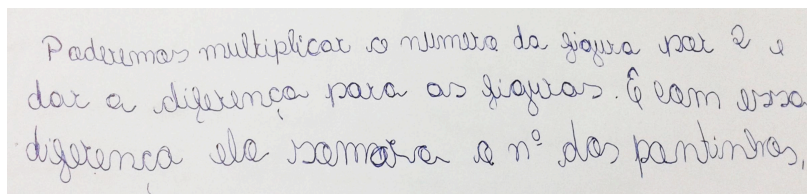 Poderemos multiplicar o numero da figura por 2 e
dar a diferença para as figuras. E com essa
diferença ele somara o nº dos pontinhos,